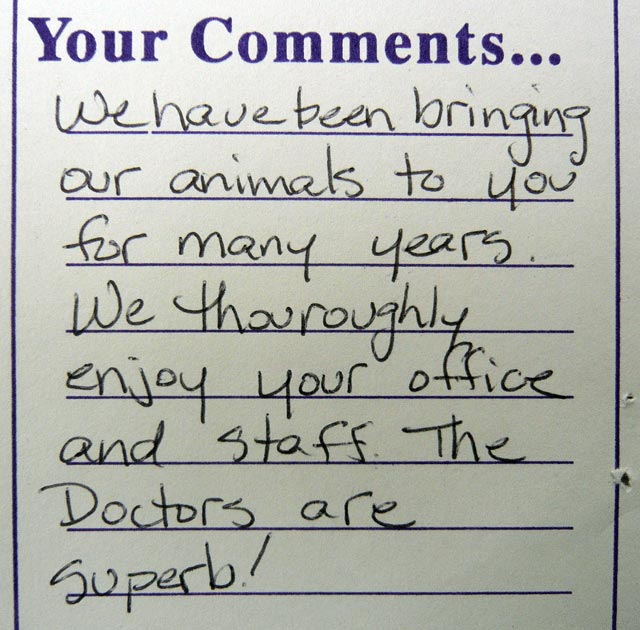 Your Comments...
We have been bringing
our animals to you
for many years.
We thouroughly
enjoy your office
and staff. The
Doctors are
superb!